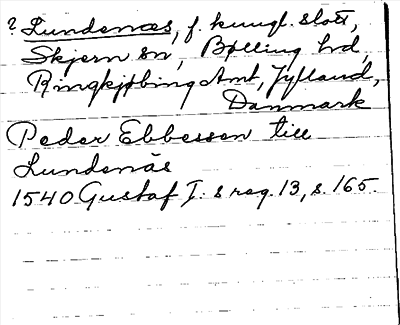 ? Lundenæs, f. kungl. slott,
Skjern sn, Bølling hd,
Ringkjøbing Amt, Jylland,
Danmark
Peder Ebbessen till
Lundenäs
1540 Gustaf I:s reg. 13, s. 165.